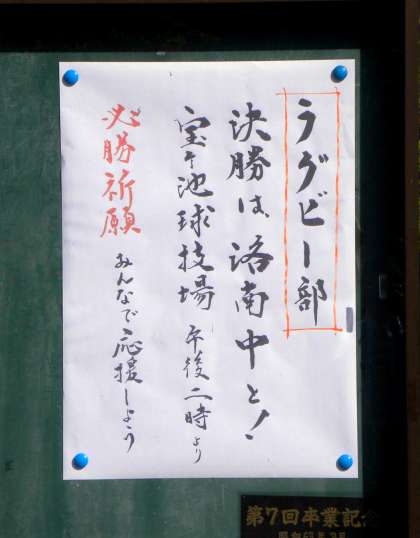 ラグビー部
決勝は、洛南中と!
宝ヶ池球技場 午後二時より
必勝祈願 みんなで応援しよう
第7回卒業記念